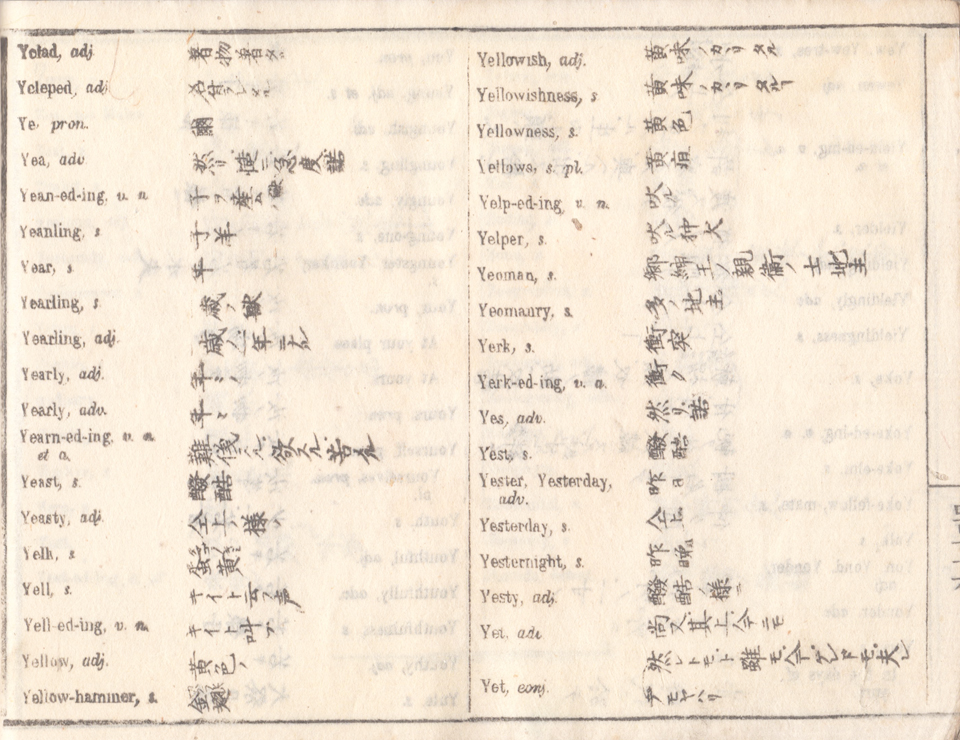 Yclad, adj 着物着タ
Ycleped, adj 名付ラレタ
Ye. pron. 爾
Yea, adv 然リ
Yean-ed-ing, v. n. 羊ヲ産ム
Yeanling, s 子羊
Year, s 年
Yearling, s 一歳ノ獣
Yearling, adj. 一歳ノ
Yearly, adj. 年々ノ
Yearly, adv. 年々
Yearn-ed-ing, v. n.
et a.
Yeast, s. 醗酷
Yeasty, adj. 仝上ノ様ノ
Yelk, s 蛋黄
Yell, s. キイト云フ声
Yell-ed-ing, v. n. キイト叫フ
Yellow, adj. 黄色ノ
Yellow-hammer, s.
Yellowish, adj. 黄味ノカリタル
Yellowishness, s 黄味ノカリタル
Yellowness, s. 黄色
Yellows, s. pl. 黄疸
Yelp-ed-ing, v. n. 吠ル
Yelper, s. 吠ル狆犬
Yeoman, s. 郷紳 王ノ親衛ノ士 地主
Yeomanry, s. 多ノ地主
Yerk, s. 衝突
Yerk-ed-ing, v. a. 衝ク
Yes, adv. 然リ 諾
Yest, s. 醗酷
Yester, Yesterday, 昨日
adv.
Yesterday, s. 仝上
Yesternight, s. 昨晩
Yesty, adj. 醗酷ノ様ノ
Yet, adv 尚 又 其上 今ニモ
Yet, conj. 然レトモ